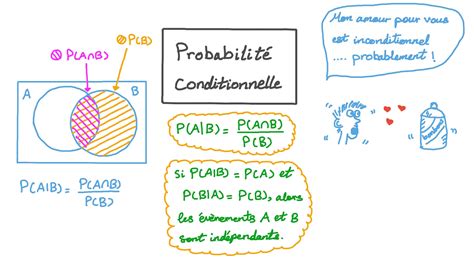 P(A∩B)
P(B)
A
B
P(A|B) = P(A∩B)/P(B)
Probabilité
Conditionnelle
P(A|B) = P(A∩B)/P(B)
Si P(A|B) = P(A) et
P(B|A) = P(B), alors
les évènements A et B
sont indépendants.
Mon amour pour vous
est inconditionnel
.... probablement !